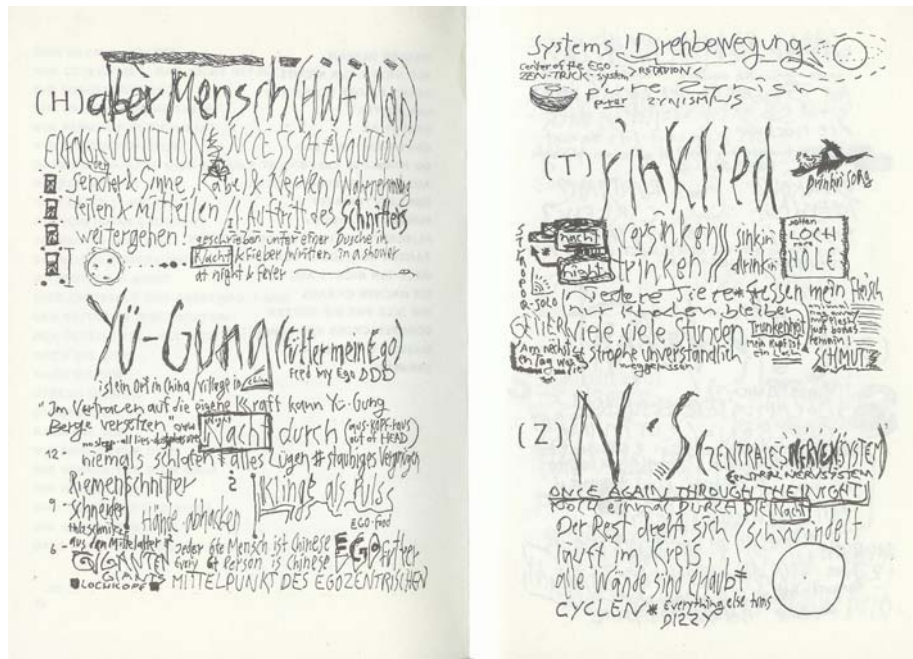 (H)aber Mensch (Half Man)
ERFOLG EVOLUTION SUCCESS OF EVOLUTION
Sender & Sinne, Kabel & Nerven / Wahrnehmung
teilen & mitteilen / It. Auftritt des Schnitters
weitergehen! geschrieben unter einer Dusche in
Nacht & Fieber / written in a shower
at night & fever
Yü-Gung (Fütter mein Ego)
Feed my Ego DDD
ist ein Ort in China / village in China
"Im Vertrauen auf die eigene Kraft kann Yü-Gung
Berge versetzen"
Night
Nacht durch (aus-KOPF-raus
out of HEAD)
no sleep - all lies -
12 - niemals schlafen # alles Lügen # staubiges Vergnügen
Riemenschnitter
9 - schneider
Hände abhacken
Klinge als Puls
EGO-food
aus dem Mittelalter
6 - GIGANTEN
GIANTS
LOCHKOPF
Jeder 6te Mensch ist Chinese
Every 6t Person is Chinese
EGO Futter
MITTELPUNKT DES EGOZENTRISCHEN
Systems ! Drehbewegung
center of the EGO
ZEN-TRICK-system > ROTATION <
pure Zynism
purer ZYNISMUS
(T)rinklied
Drinkin song
STYROPOR-SOLO
nacht
night
versinken
trinken
sinkin
drinkin
LOCH
HOLE
niedere Tiere # fressen mein Fleisch
nur Knochen bleiben
just bones
remain!
GEIER
viele viele Stunden
Trunkenheit
mein Kopf ist
ein Loch
SCHMUTZ
Am nächst
en Tag was
strophe unverständlich
weggefressen
(Z) N·S (ZENTRALES NERVENSYSTEM)
CENTRAL NERVSYSTEM
ONCE AGAIN THROUGH THE NIGHT
NOCH einmal DURCH DIE Nacht
Der Rest dreht sich / schwindelt
läuft im Kreis
alle Wände sind erlaubt #
CYCLEN * Everything else turns
DIZZY